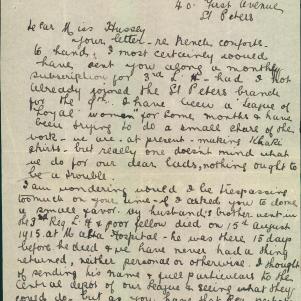 40 First Avenue
St Peters
Dear Miss Hussey
Your letter - re Trench comforts -
to hand; I most certainly would
have sent you along a monthly
subscription for 3rd L.H - had I not
already joined the St Peters branch
for the 9th. I have been a "League of
Loyal women" for some months & have
been trying to do a small share of the
work - we are - at present - making Khaki
shirts - but really one doesn't mind what
we do for our dear lads, nothing ought to
be a trouble.
I am wondering would I be trespassing
too much on your time - if I asked you to do me
a small favor. My husband's brother went in
the 3rd Reg L.H & poor fellow died on 15th August
1915. at Malta Hospital - he was there 15 days
before he died & we have never had a thing
returned, neither personal or otherwise, I thought
of sending his name & full particulars to the
Central depot of our League & seeing what they
could do, but as you have that